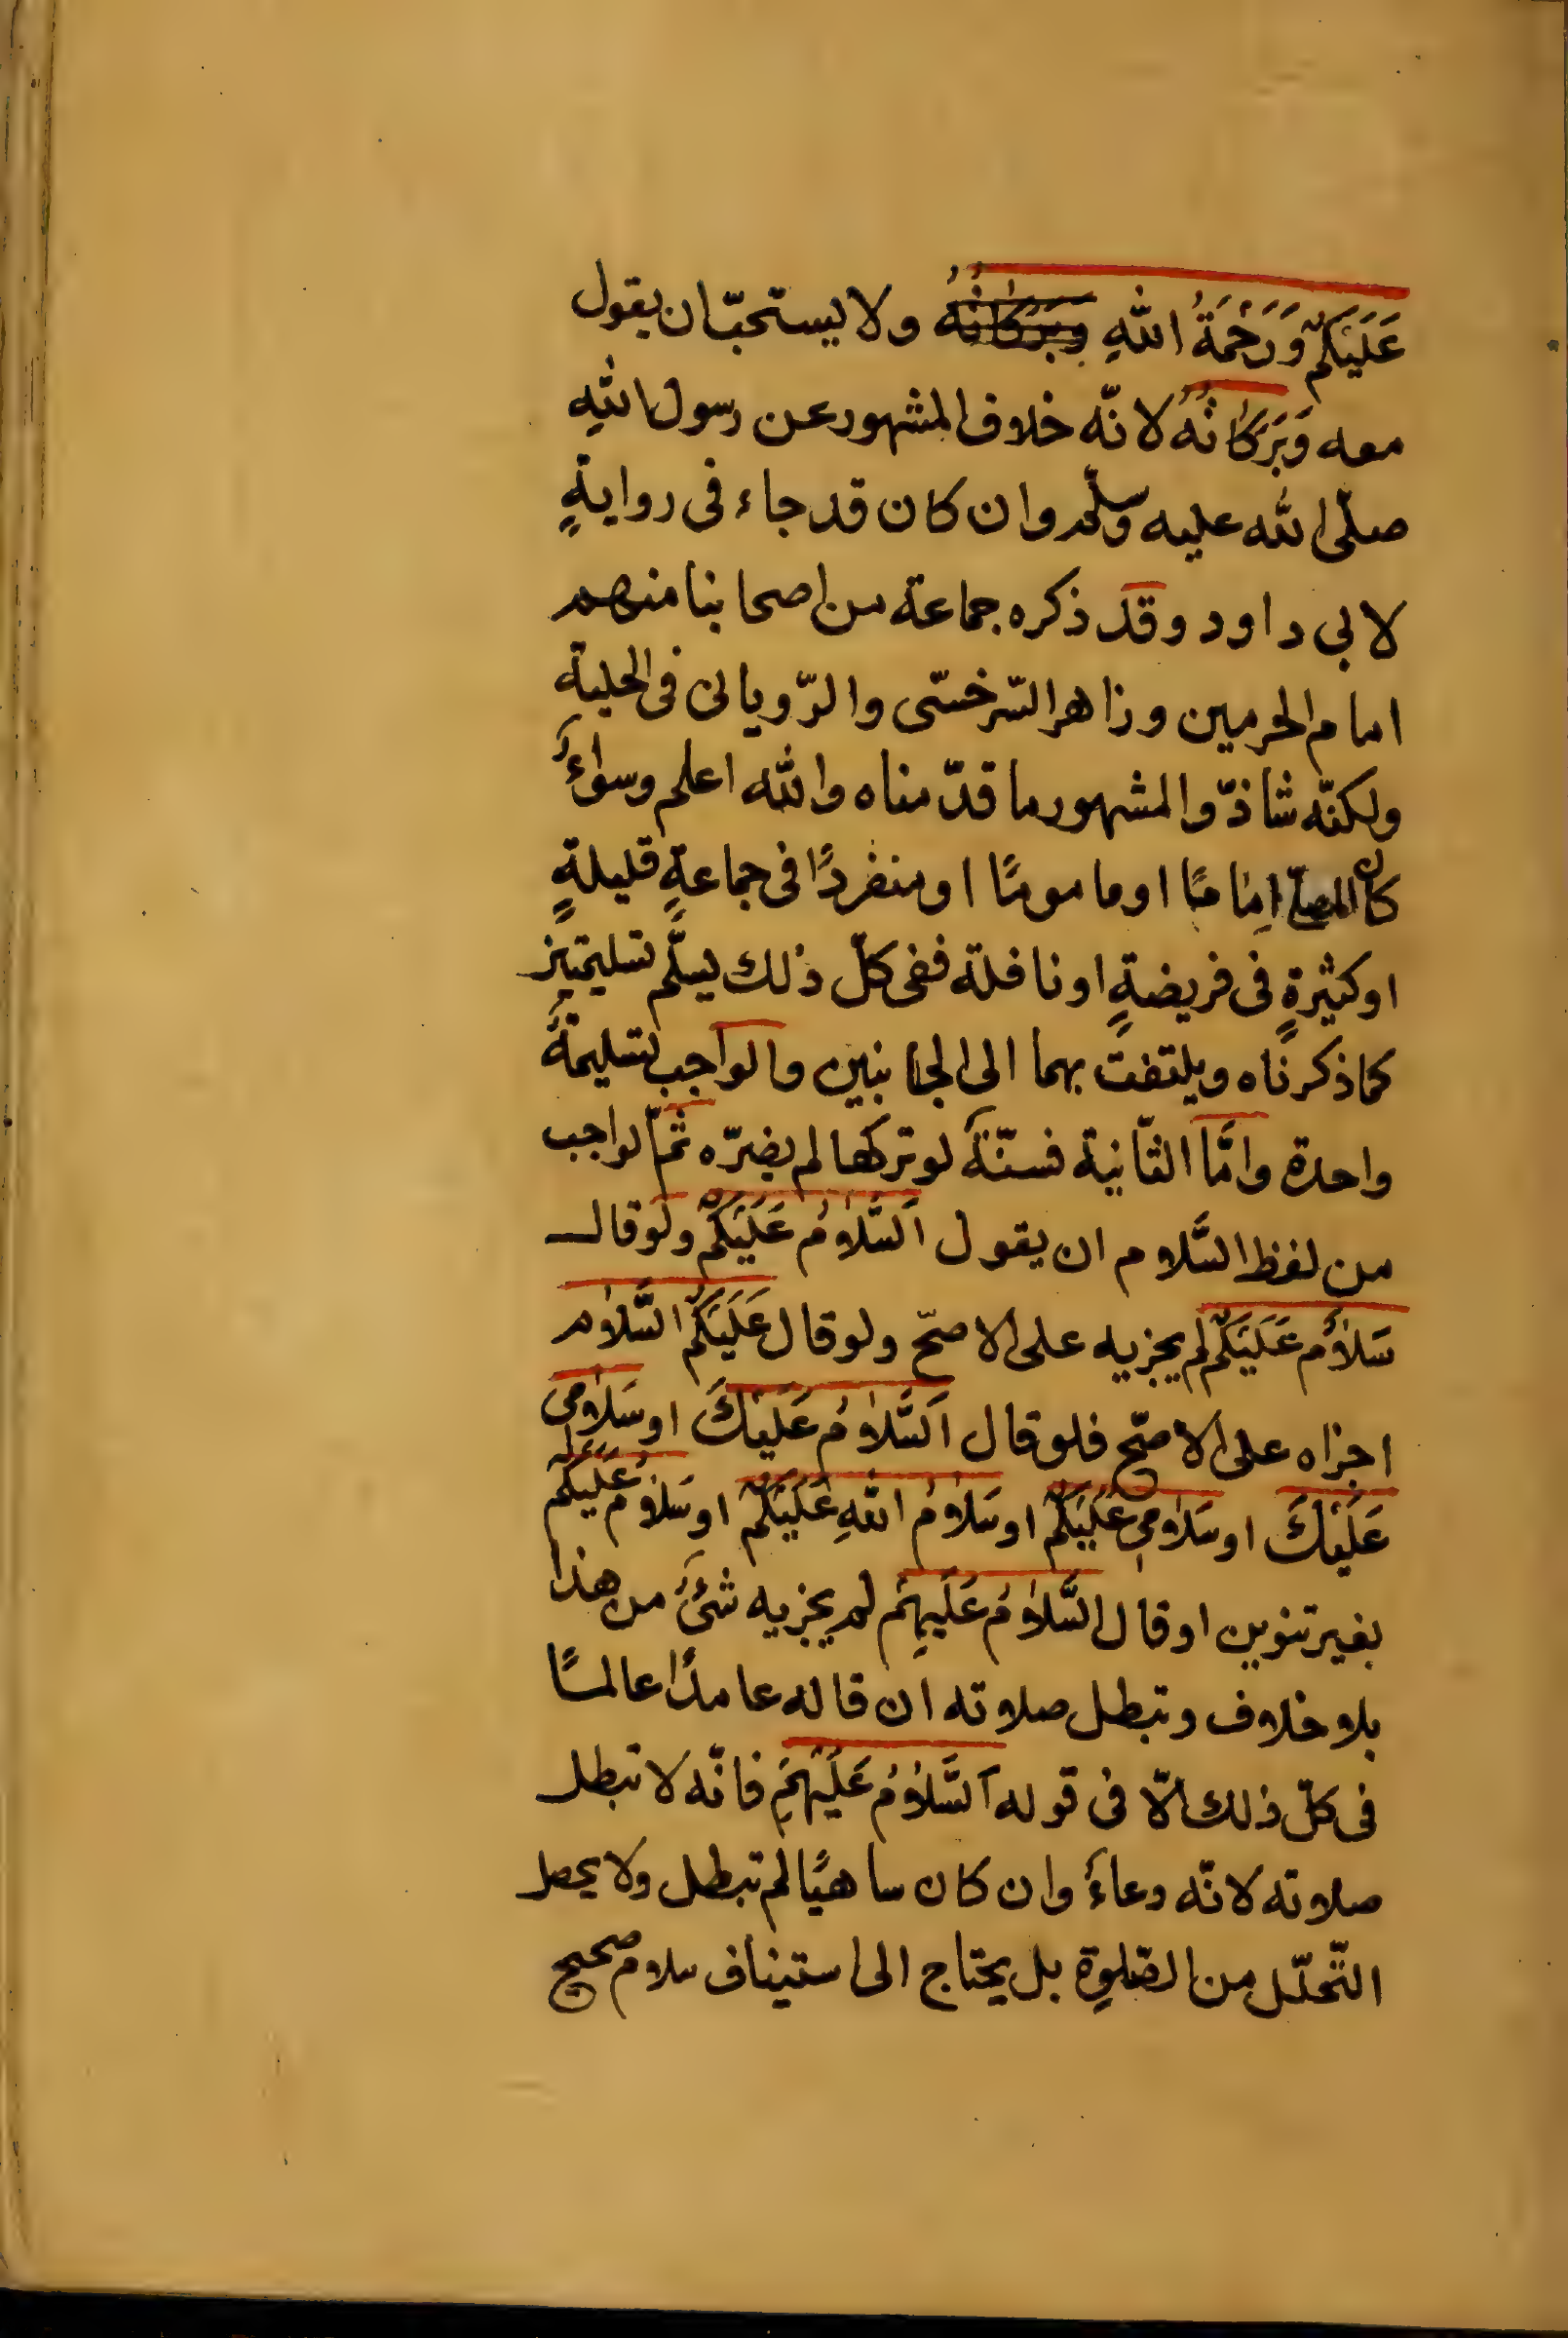 عَلَيْكُمْ وَرَحْمَةُ اللهِ وبَرَكَاتُهُ ولا يستحبّ ان يقول
معه وَبَرَكَاتُهُ لانّه خلاف المشهور عن رسول اللهِ
صلّى الله عليه وسلّم وان كان قد جاء فى روايةٍ
لابى داود وقد ذكره جماعة من اصحابنا منهم
امام الحرمين وزاهر السّرخسّى والرّويانى فى الحلية
ولكنّه شاذّ والمشهور ما قدّمناه والله اعلم وسوٰاءٌ
كان المصلّى اِمٰامًا او مامومًا او منفردًا فى جماعةٍ قليلةٍ
او كثيرةٍ فى فريضةٍ او نافلة ففى كلّ ذلك يسلّم تسليمتين
كما ذكرناه ويلتفت بهما الى الجانبين والواجب تسليمةٌ
واحدة وامّا الثّانية فسنّةٌ لو تركها لم يضرّه ثمّ الواجب
من لفظ السَّلام ان يقول اَلسَّلاٰمُ عَلَيْكُمْ ولو قال
سَلاٰمٌ عَلَيْكُمْ لم يجزيه على الاصحّ ولو قال عَلَيْكُمُ السَّلاٰم
اجزاه على الاصحّ فلو قال اَلسَّلاٰمُ عَلَيْكَ او سَلاٰمى
عَلَيْكَ او سَلاٰمى عَلَيْكُمْ او سَلاٰمُ اللهِ عَلَيْكُمْ او سَلاٰمُ عَلَيْكُمْ
بغير تنوين او قال السَّلاٰمُ عَلَيْهِمْ لم يجزيه شئٌ من هذا
بلا خلاف وتبطل صلاته ان قاله عامدًا عالمًا
فى كلّ ذلك الاّ فى قوله اَلسَّلاٰمُ عَلَيْهِمْ فانّه لا تبطل
صلاته لانّه دعاءٌ وان كان ساهيًا لم تبطل ولا يحصل
التّحلّل من الصّلوة بل يحتاج الى استيناف سلام صحيح